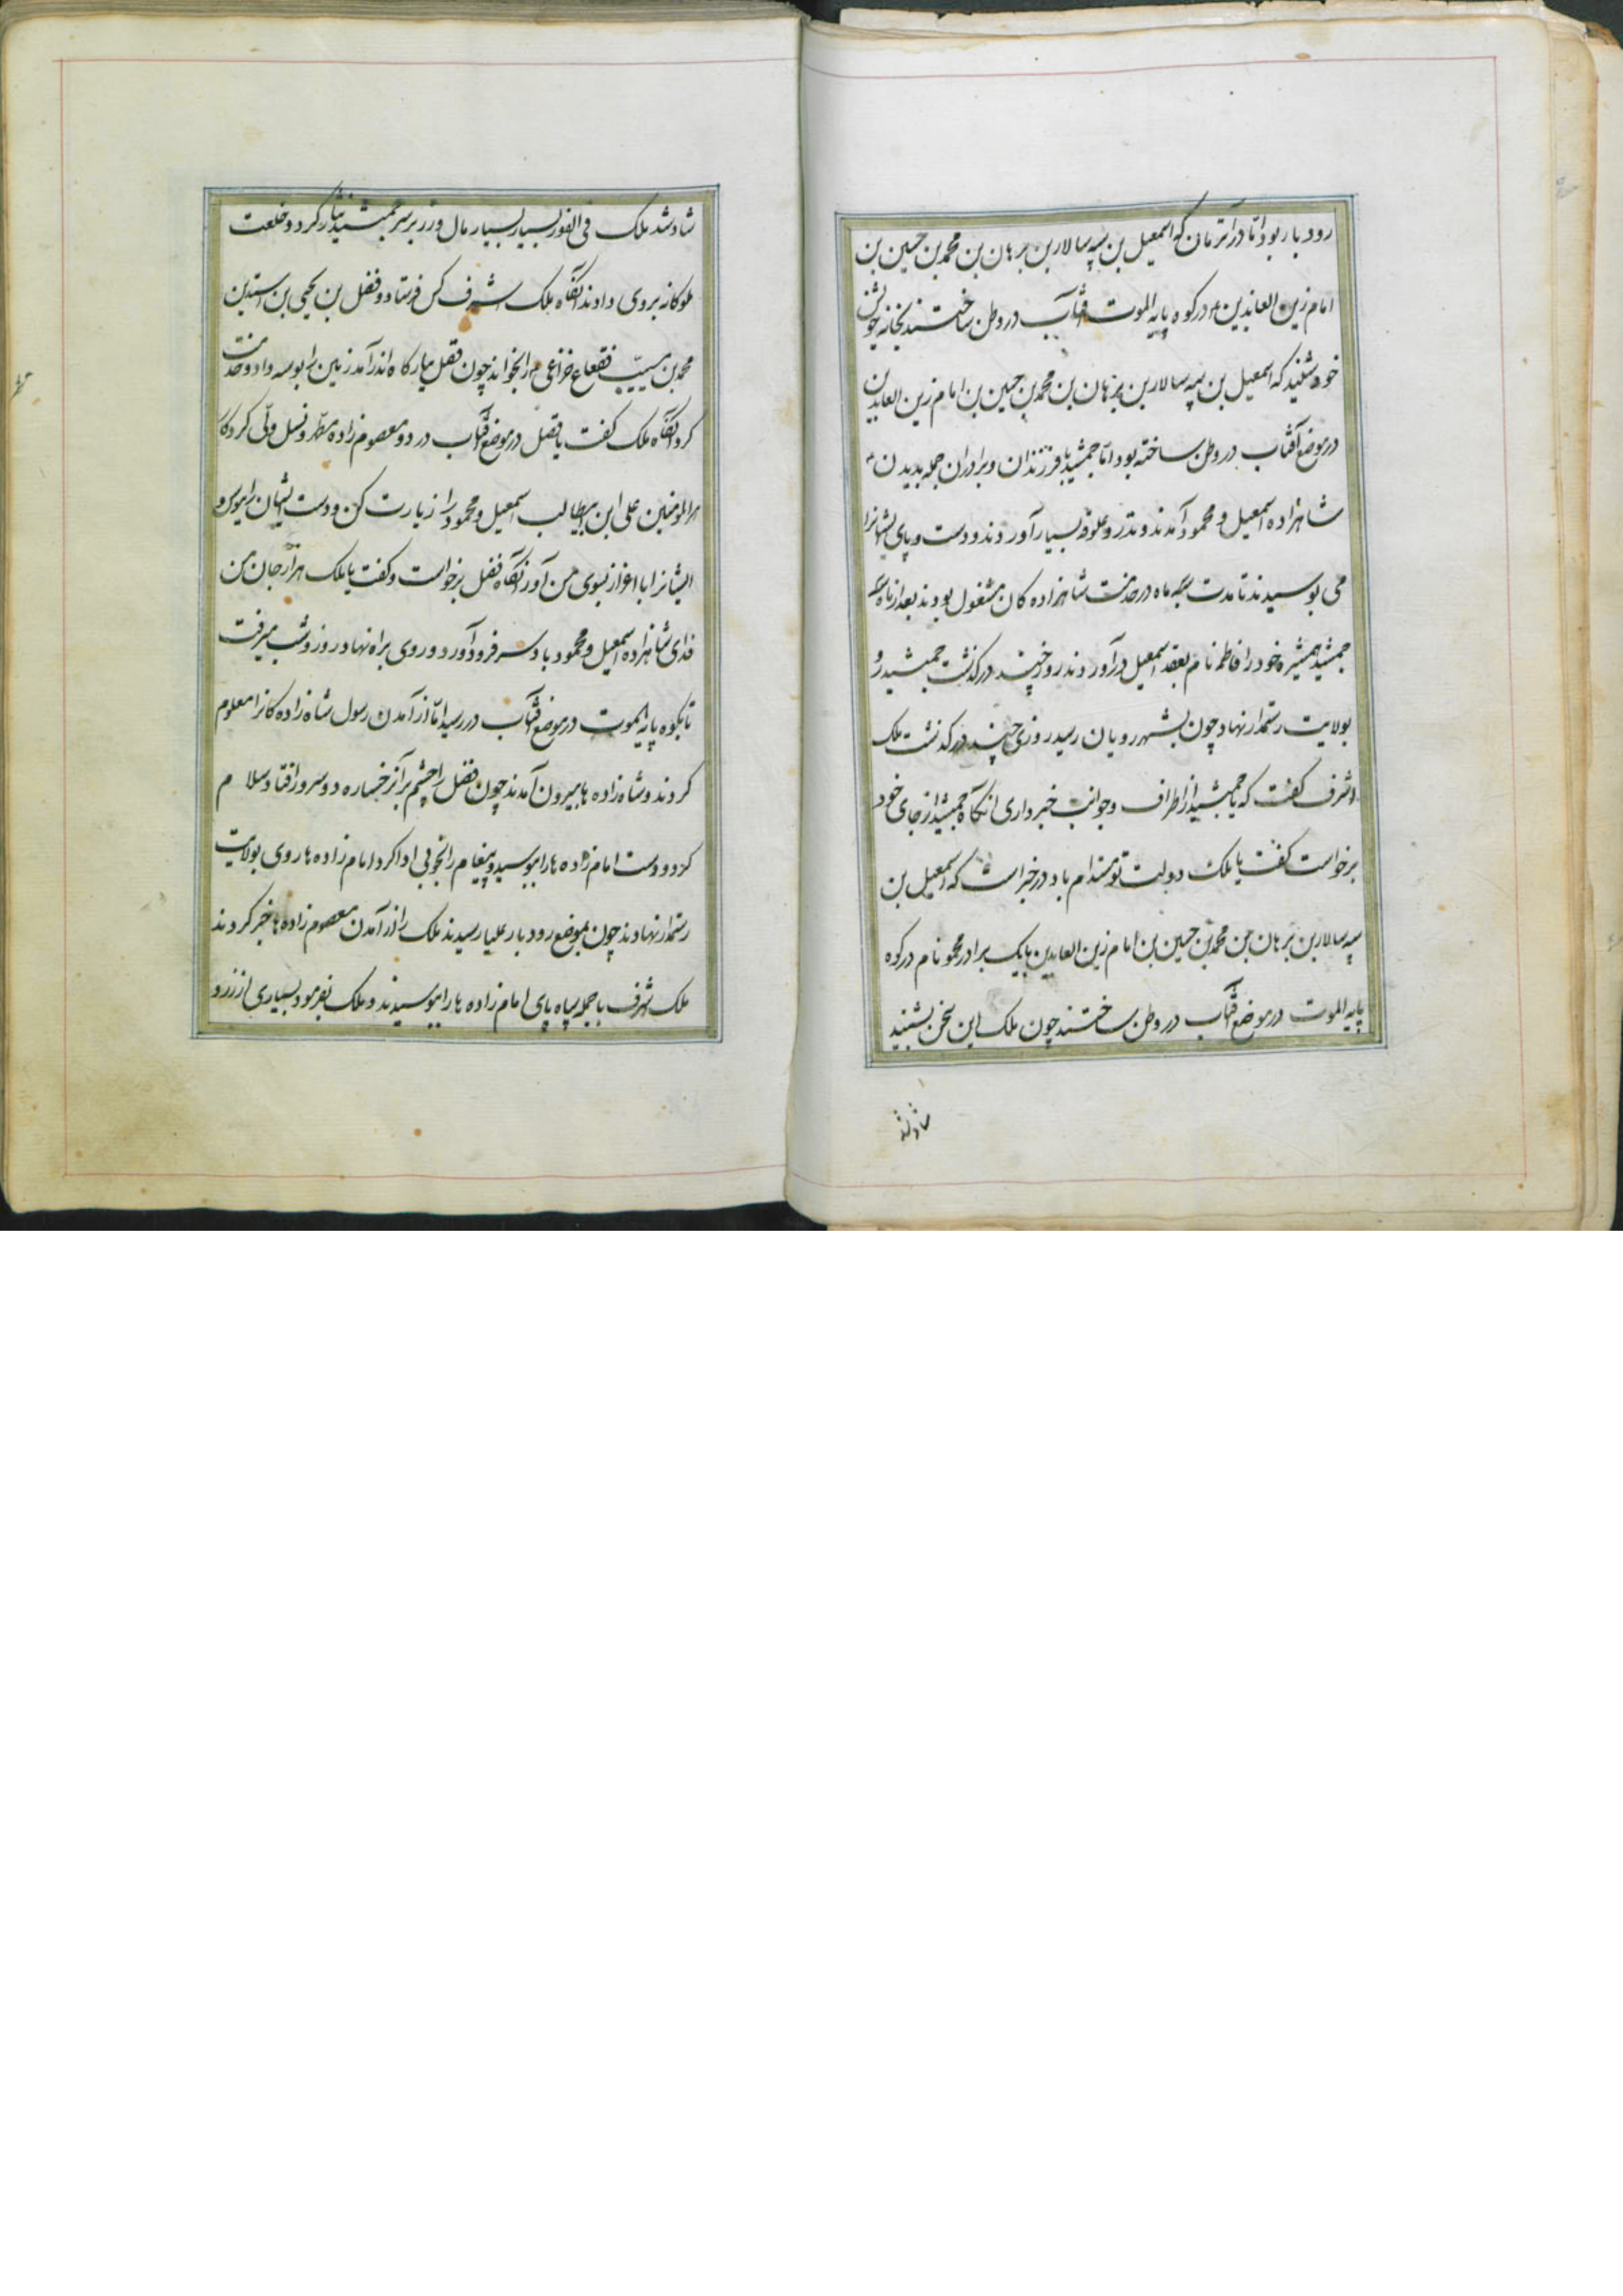 رودبار بود اما در آنزمان که اسمعیل بن سپه سالار بن برهان بن محمد بن حسین بن
امام زین العابدین در کوه پایه الموت آفتاب در وطن ساختند بخانه خویش
خود شنید که اسمعیل بن سپه سالار بن برهان بن محمد بن حسین بن امام زین العابدین
در موضع آفتاب در وطن ساخته بود اما جمشید با فرزندان و برادران جمله بدیدن
شاهزاده اسمعیل و محمود آمدند و نذر و علوفه بسیار آوردند و دست و پای ایشانرا
می بوسیدند تا مدت سه ماه در خدمت شاهزاده کان مشغول بودند بعد از سه ماه
جمشید همشیره خود را فاطمه نام بعقد اسمعیل درآوردند روز چند درگذشت جمشید رو
بولایت رستمدار نهاد چون بشهر رویان رسید روزی چند درگذشت ملک
اشرف گفت که یا جمشید از اطراف و جوانب خبر داری آنگاه جمشید از جای خود
برخواست گفت یا ملک دولت تو مستدام باد در خبر است که اسمعیل بن
سپه سالار بن برهان بن محمد بن حسین بن امام زین العابدین با یک برادر محمود نام در کوه
پایه الموت در موضع آفتاب در وطن ساختند چون ملک این سخن بشنید
شاد شد
شاد شد ملک فی الفور بسیار بسیار مال و زر بر سر جمشید نثار کرد و خلعت
ملوکانه بروی دادند آنگاه ملک اشرف کس فرستاد و فضل بن یحیی بن
محمد بن مسیب فقعاع خزاعی را بخواند چون فضل ببارکاه اندر آمد زمین را بوسه داد و خدمت
کرد آنگاه ملک گفت یا فضل در موضع آفتاب در دو معصوم زاده مطهر و نسل ولی کردکار
امیرالمومنین علی ابن ابیطالب اسمعیل و محمود را زیارت کن و دست ایشان را ببوس و
ایشانرا با اعزاز بسوی من آور آنگاه فضل برخواست و گفت یا ملک هزار جان من
فدای شاهزاده اسمعیل و محمود باد سر فرود آورد و روی براه نهاد روز و شب میرفت
تا بکوه پایه الموت در موضع آفتاب در رسید اما از آمدن رسول شاه زاده کانرا معلوم
کردند و شاه زاده ها بیرون آمدند چون فضل را چشم بر آن رخساره دو سرور افتاد سلام
کرد و دست امام زاده ها را ببوسید و پیغام را بخوبی ادا کرد امام زاده ها روی بولایت
رستمدار نهادند چون بموضع رودبار علیا رسیدند ملک را از آمدن معصوم زاده ها خبر کردند
ملک شرف با جمله سپاه پای امام زاده ها را ببوسیدند و ملک بفرمود بسیاری از زر و